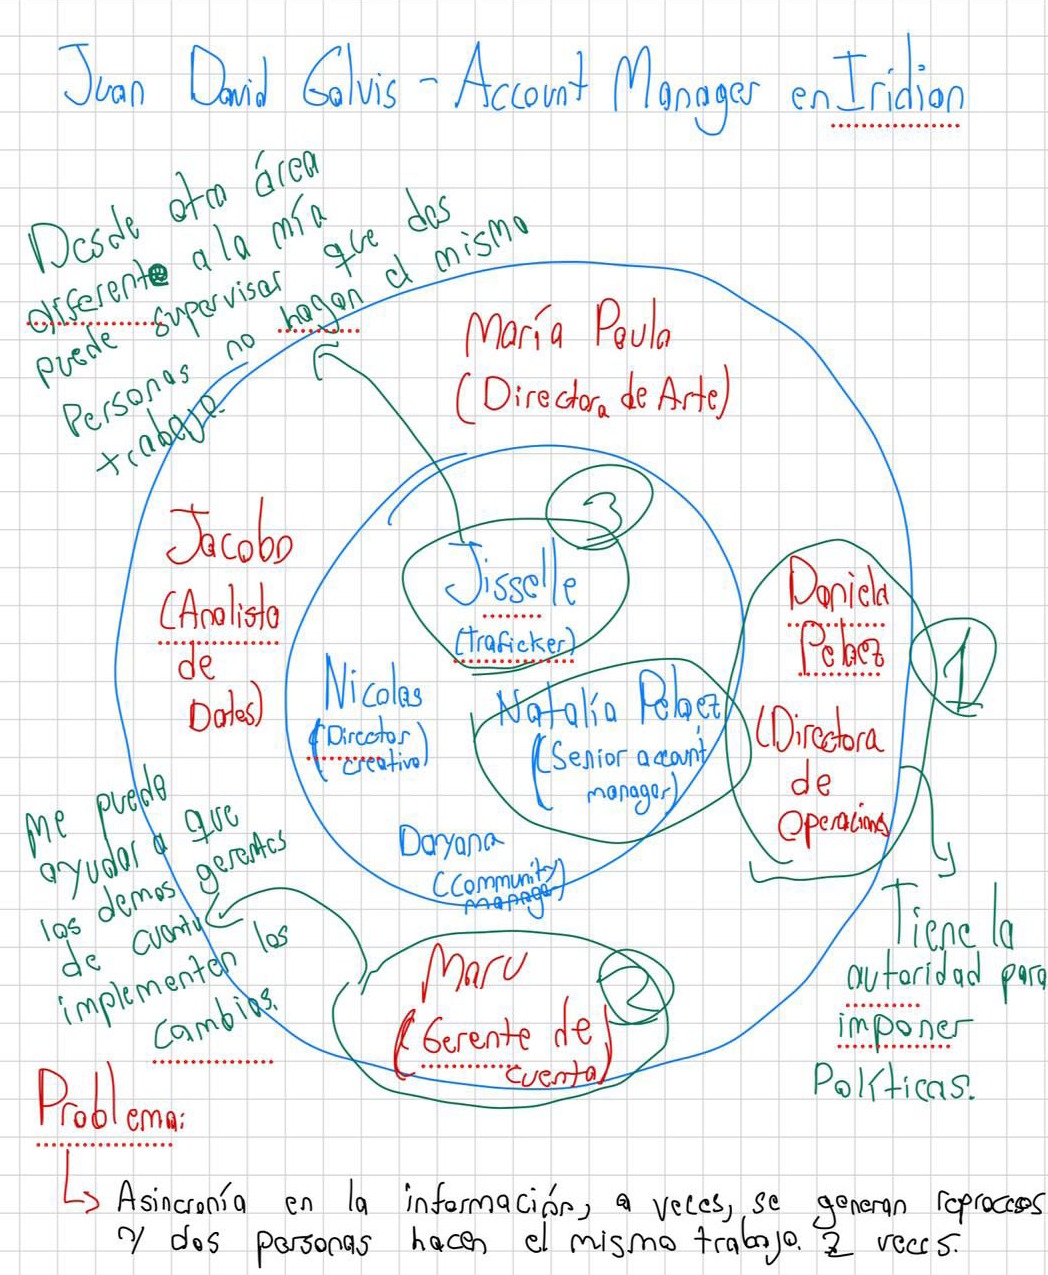 Juan David Galvis - Account Manager en Iridian
Desde otra área
diferente a la mía
puede supervisar que dos
Personas no hagan el mismo
trabajo.
María Paula
(Directora de Arte)
3
Jacobo
(Analista
de
Datos)
Jisselle
(traficker)
Daniela
Peláez
(Directora
de
Operaciones
1
Nicolas
(Director
creativo)
Natalía Peláez
(Senior account
manager)
Me puede
ayudar a que
los demas gerentes
de cuenta
implementen los
cambios.
Dayana
(Community
manager)
Tiene la
autoridad para
imponer
Políticas.
Maru
2
(Gerente de
cuenta)
Problema:
Asincronía en la información, a veces, se generan reprocesos
y dos personas hacen el mismo trabajo 2 veces.